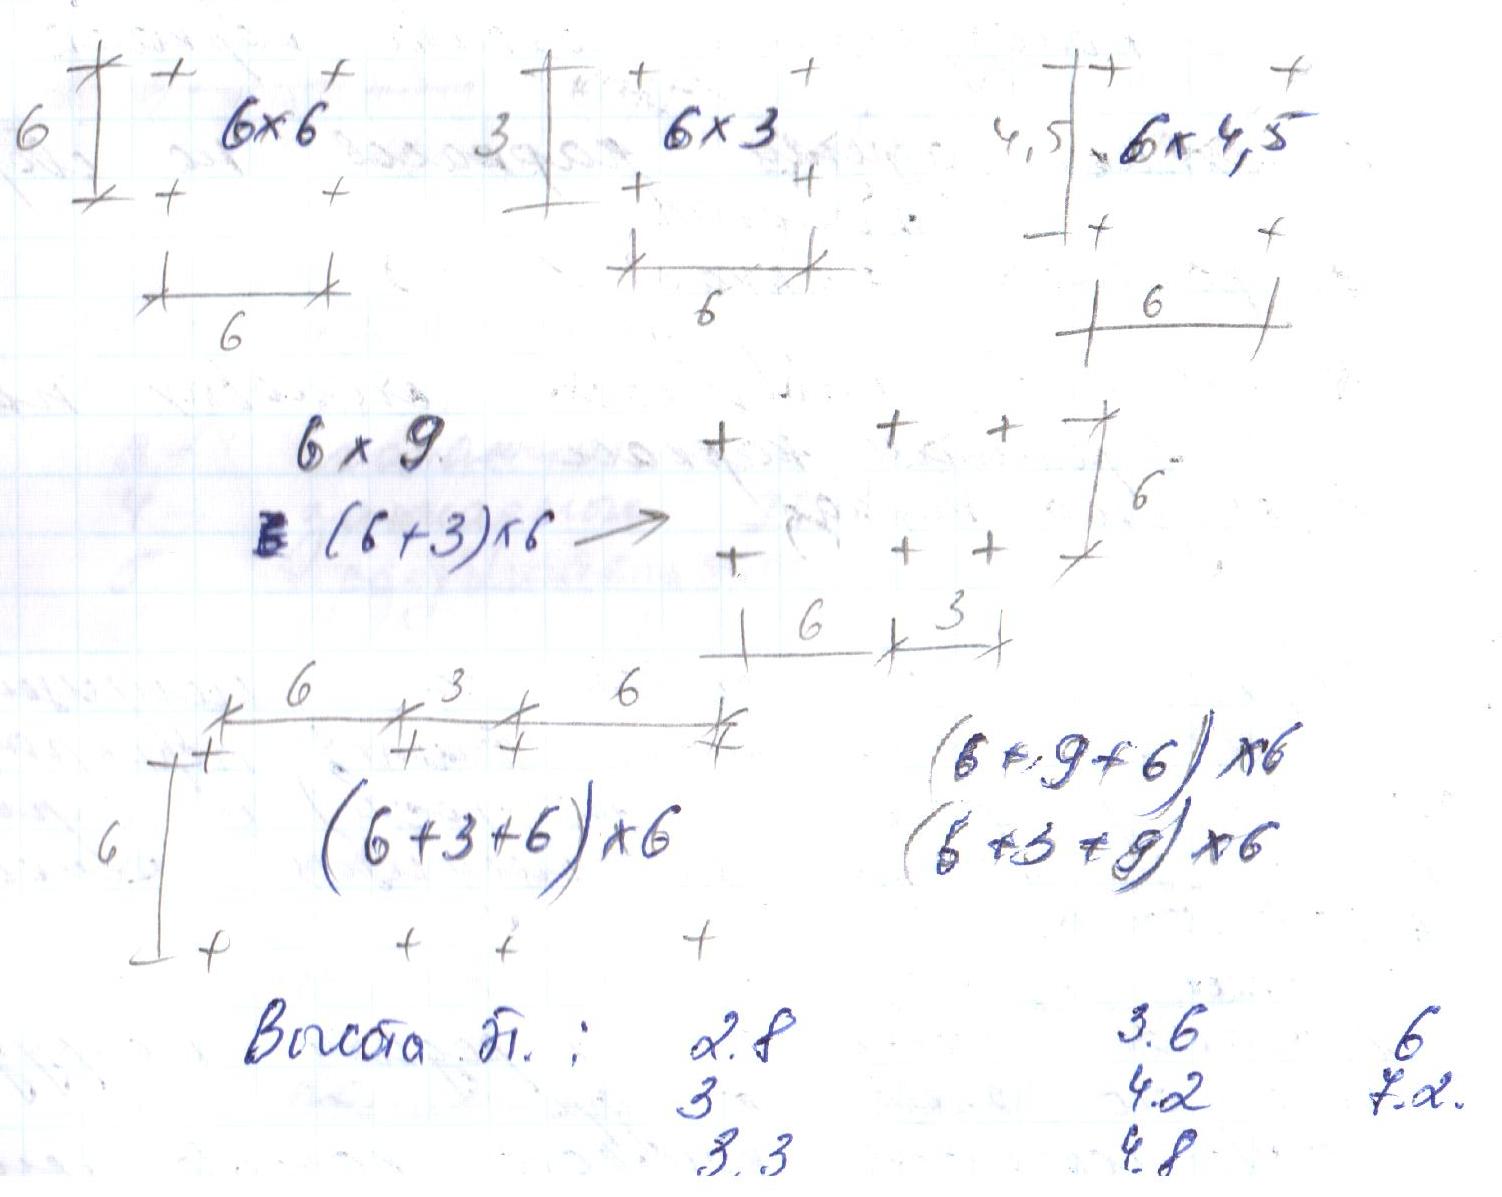 6 6×6 3 6×3 4,5 6×4,5
6 6 6
6×9
(6+3)×6 6
6 3
6 3 6
(6+9+6)×6
6 (6+3+6)×6 (6+3+9)×6
Высота эт.: 2.8 3.6 6
3 4.2 7.2.
3.3 4.8